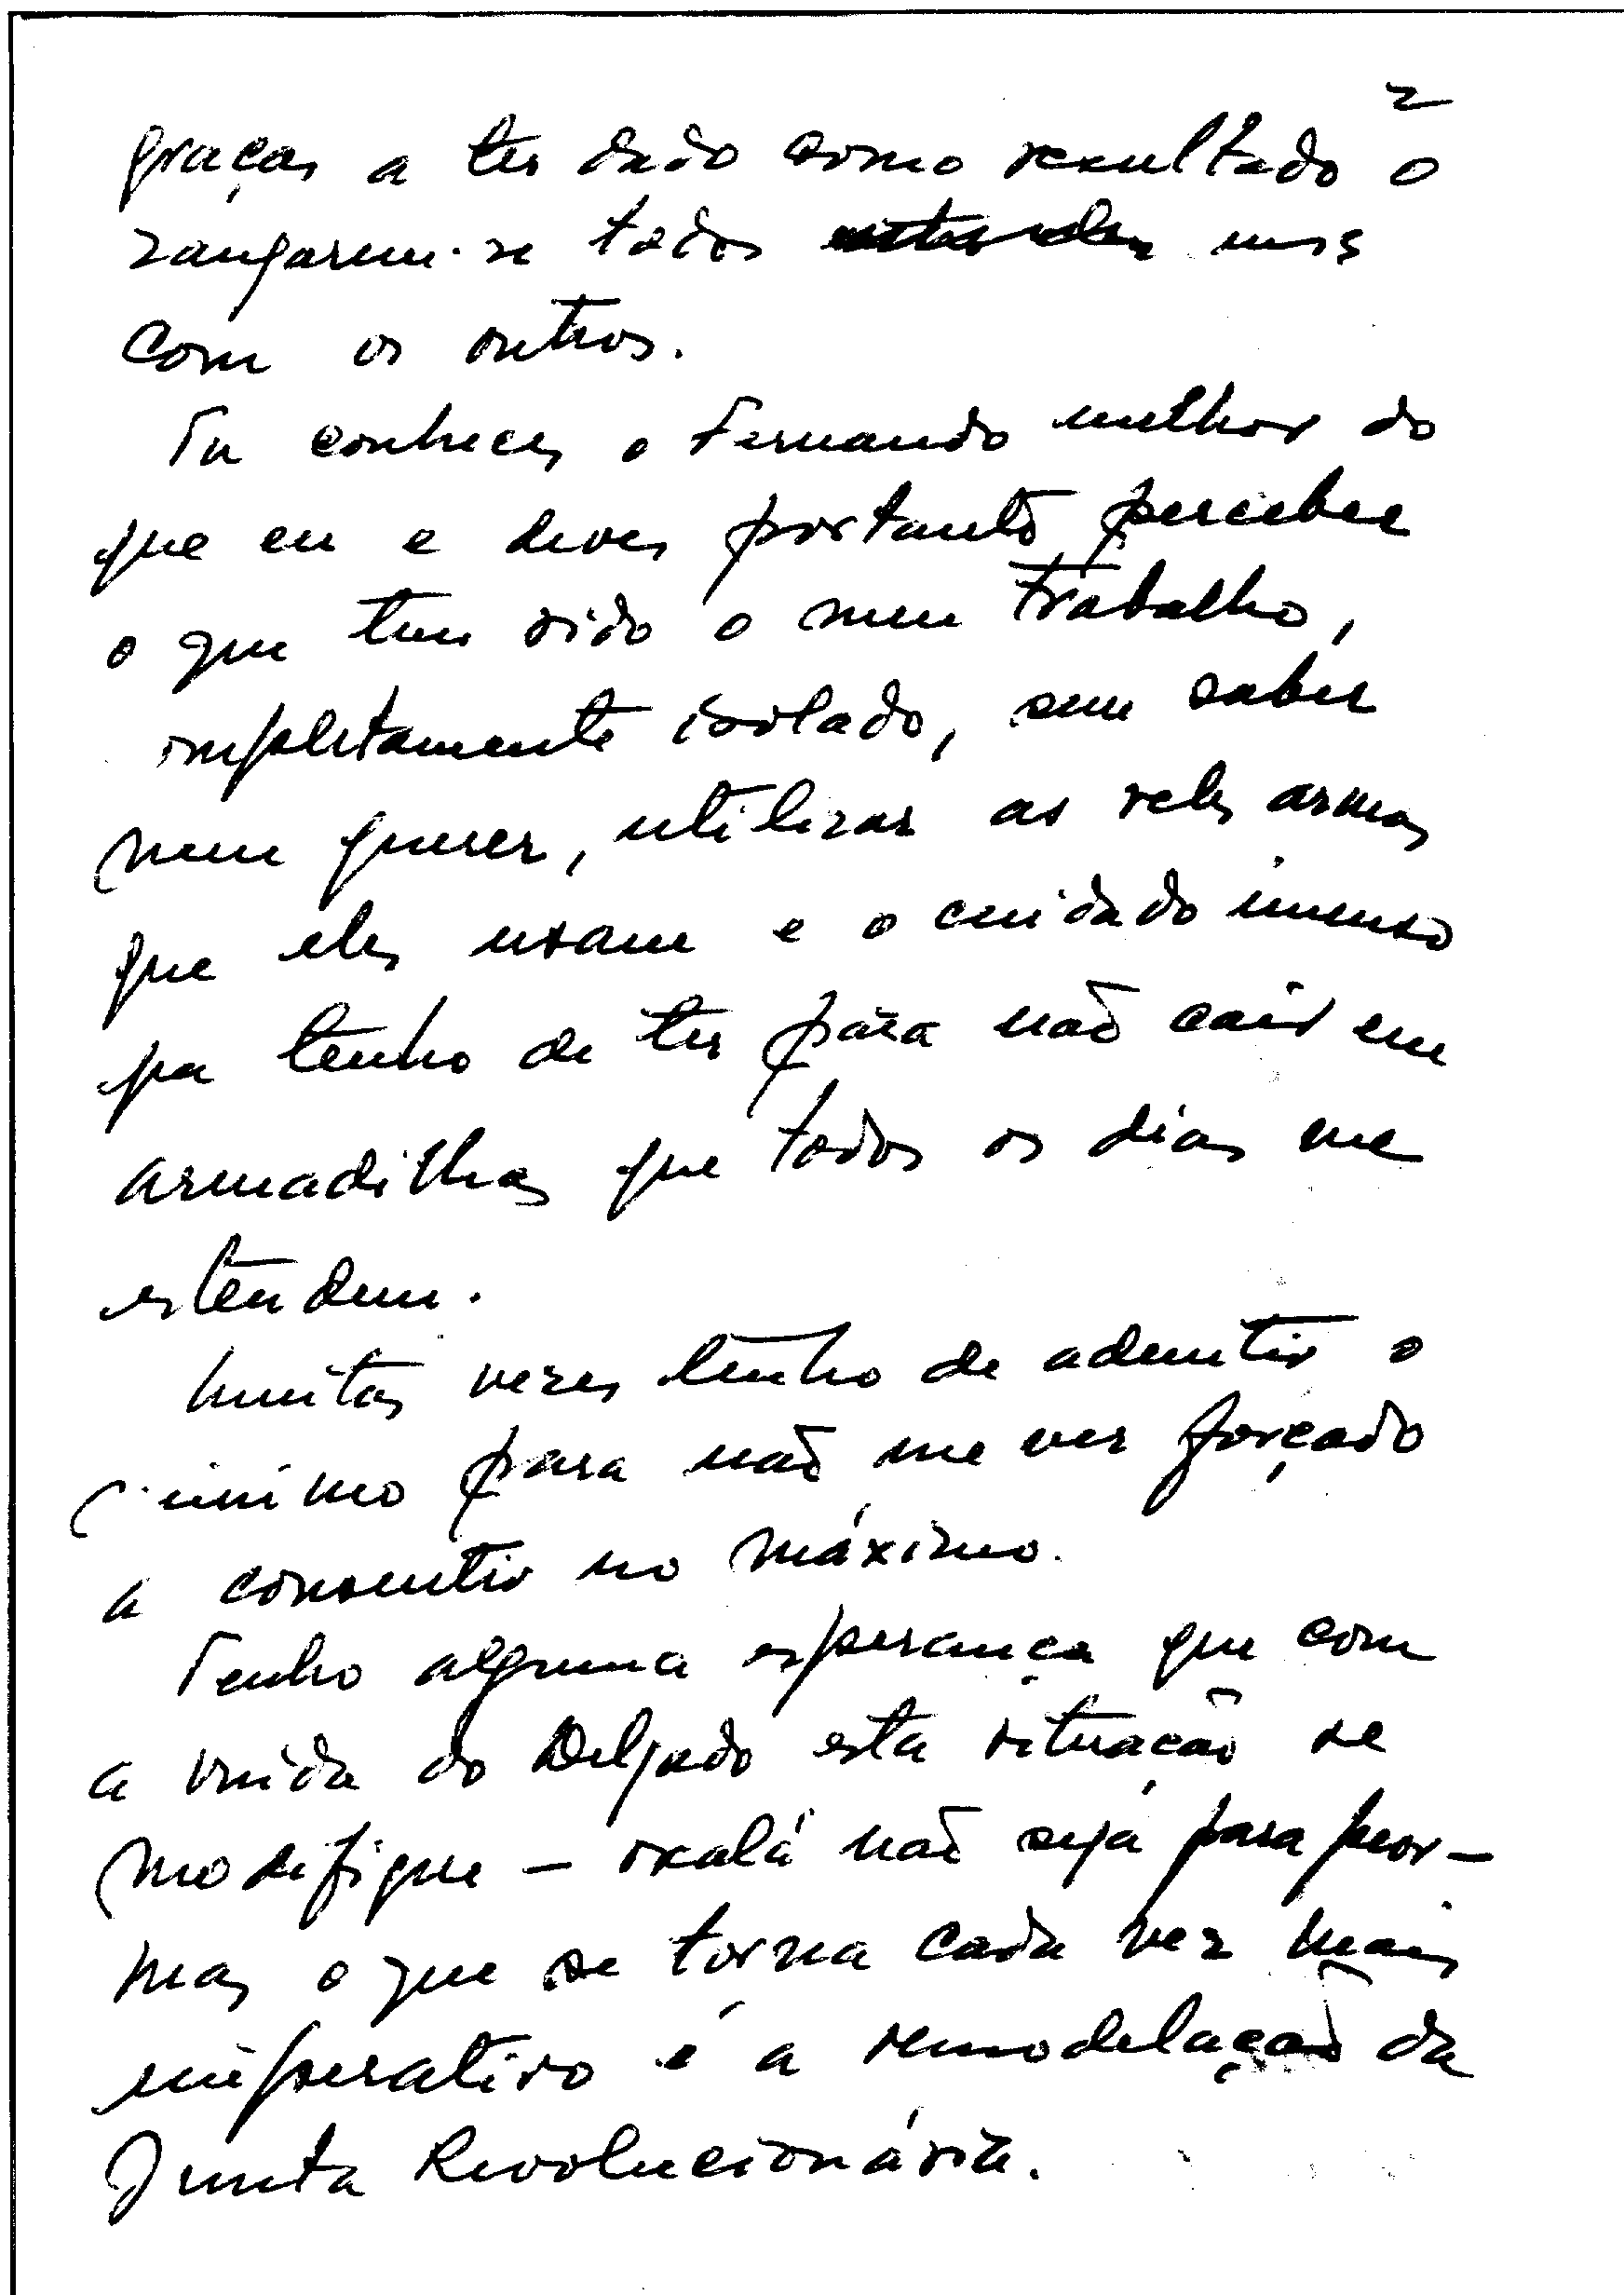 2
graças a ter dado como resultado o
zangarem-se todos uns
com os outros.
Tu conheces o Fernando melhor do
que eu e deves portanto perceber
o que tem sido o meu trabalho,
completamente isolado, sem saber
nem querer, utilizar as reles armas
que eles usam e o cuidado imenso
que tenho de ter para não cair em
armadilhas que todos os dias me
estendem.
Muitas vezes tenho de admitir o
mínimo para não me ver forçado
a consentir no máximo.
Tenho alguma esperança que com
a vinda do Delgado esta situação se
modifique — oxalá não seja para peor —
mas o que se torna cada vez mais
imperativo é a remodelação da
Junta Revolucionária.